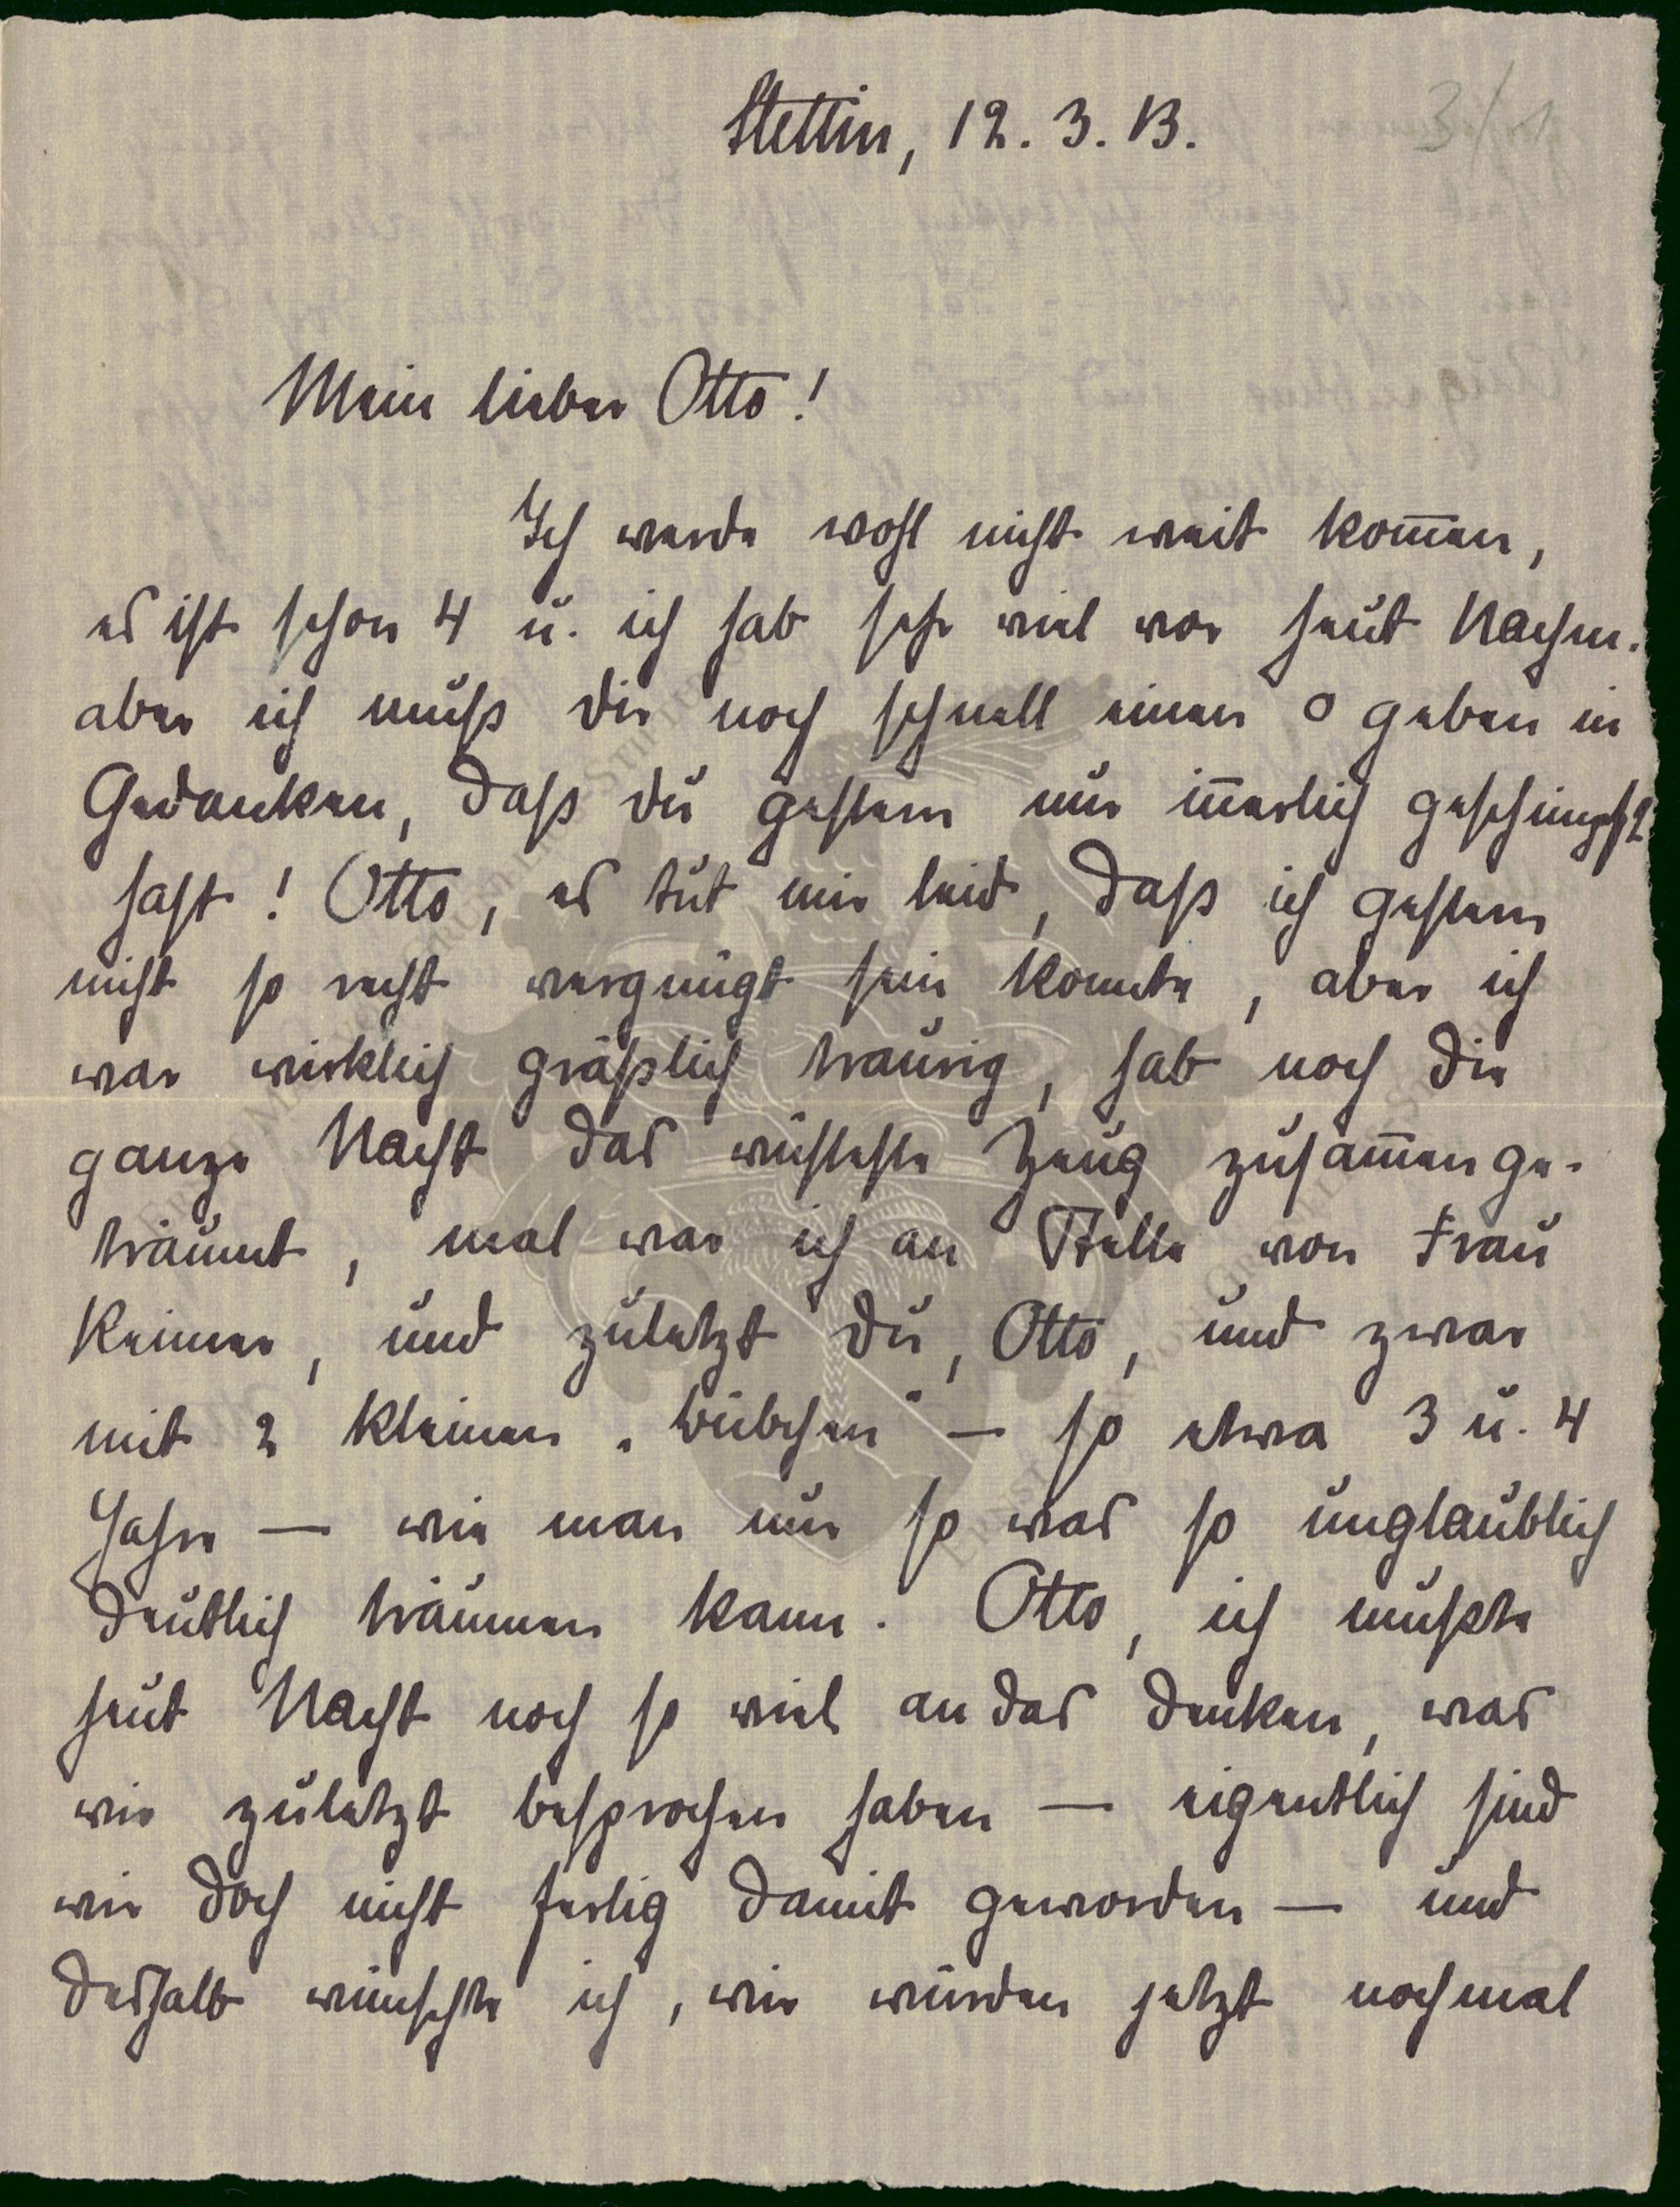 3/21
Stettin, 12. 3. 13.
Mein lieber Otto!
Ich werde wohl nicht weit kom̅en,
es ist schon 4 u. ich hab sehr viel vor heut Nachm.
aber ich muß dir noch schnell einen o geben in
Gedanken, daß du gestern nur in̅erlich geschimpft
hast! Otto, es tut mir leid, daß ich gestern
nicht so recht vergnügt sein konnte, aber ich
war wirklich gräßlich traurig, hab noch die
ganze Nacht das wüsteste Zeug zusam̅enge-
träumt, mal war ich an Stelle von Frau
Keimer, und zuletzt du, Otto, und zwar
mit 2 kleinen „Bübchen" — so etwa 3 u. 4
Jahre — wie man nur so was so unglaublich
deutlich träumen kann. Otto, ich mußte
heut Nacht noch so viel an das denken, was
wir zuletzt besprochen haben — eigentlich sind
wir doch nicht fertig damit geworden — und
deshalb wünschte ich, wir würden jetzt nochmal